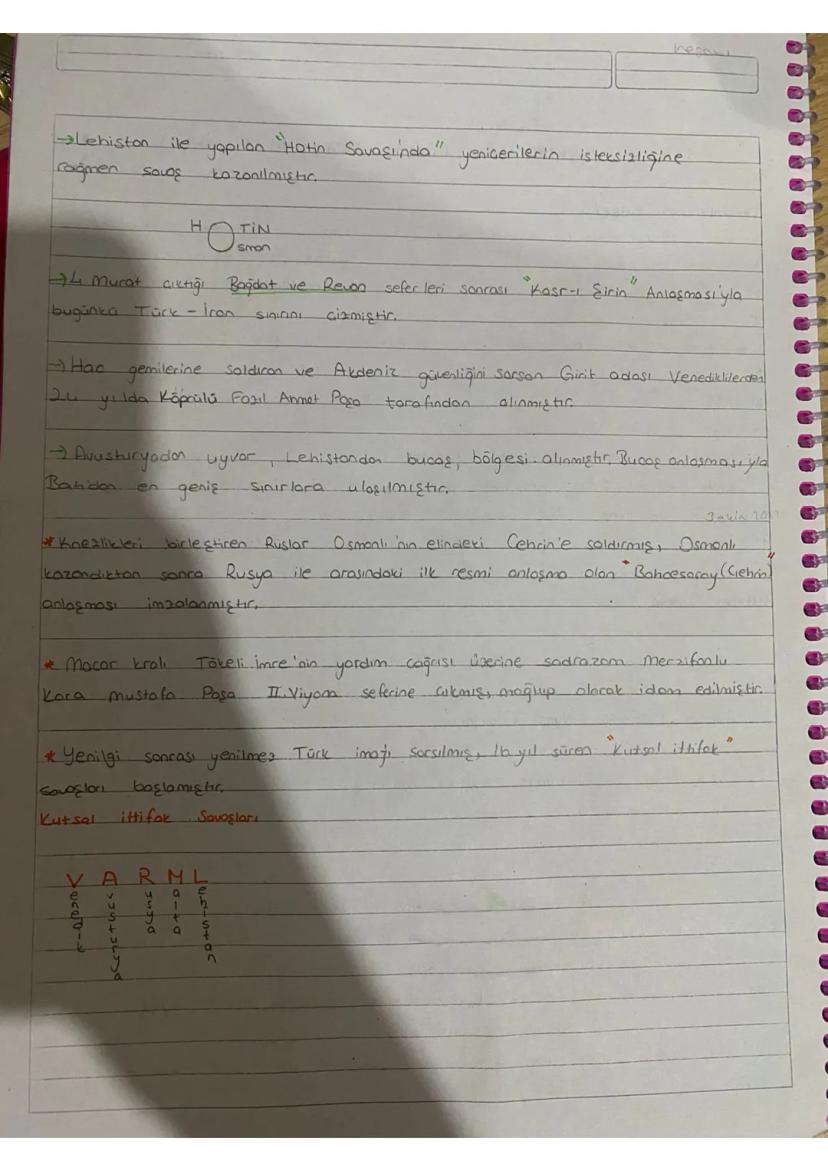 →Lehiston ile yapılan "Hotin Savaşında" yeniçerilerin isteksizliğine
rağmen savaş kazanılmıştır.
H O TİN
sman
→4 Murat çıktığı Bağdat ve Revan seferleri sonrası "Kasr-ı Şirin" Anlaşması'yla
bugünkü Türk-İran sınırını çizmiştir.
→Hac gemilerine saldıran ve Akdeniz güvenliğini sarsan Girit adası Venediklilerden
24 yılda Köprülü Fazıl Ahmet Paşa tarafından alınmıştır.
→Avusturyadan uyvar, Lehistandan bucaş, bölgesi alınmıştır. Bucaş anlaşmasıyla
Batıdan en geniş sınırlara ulaşılmıştır.
*Knezlikleri birleştiren Ruslar Osmanlı'nın elindeki Çehrin'e saldırmış, Osmanlı
kazandıktan sonra Rusya ile arasındaki ilk resmi anlaşma olan "Bahçesaray (Çehrin)"
anlaşması imzalanmıştır.
* Macar kralı Tökeli imre'nin yardım çağrısı üzerine sadrazam merzifonlu
Kara mustafa Paşa II. Viyana seferine çıkmış, mağlup olarak idam edilmiştir.
* Yenilgi sonrası yenilmez Türk imajı sarsılmış, 16 yıl süren "Kutsal ittifak"
savaşları başlamıştır.
Kutsal ittifak Savaşları
V A R M L
enedik
vusturya
usya
alta
ehistan